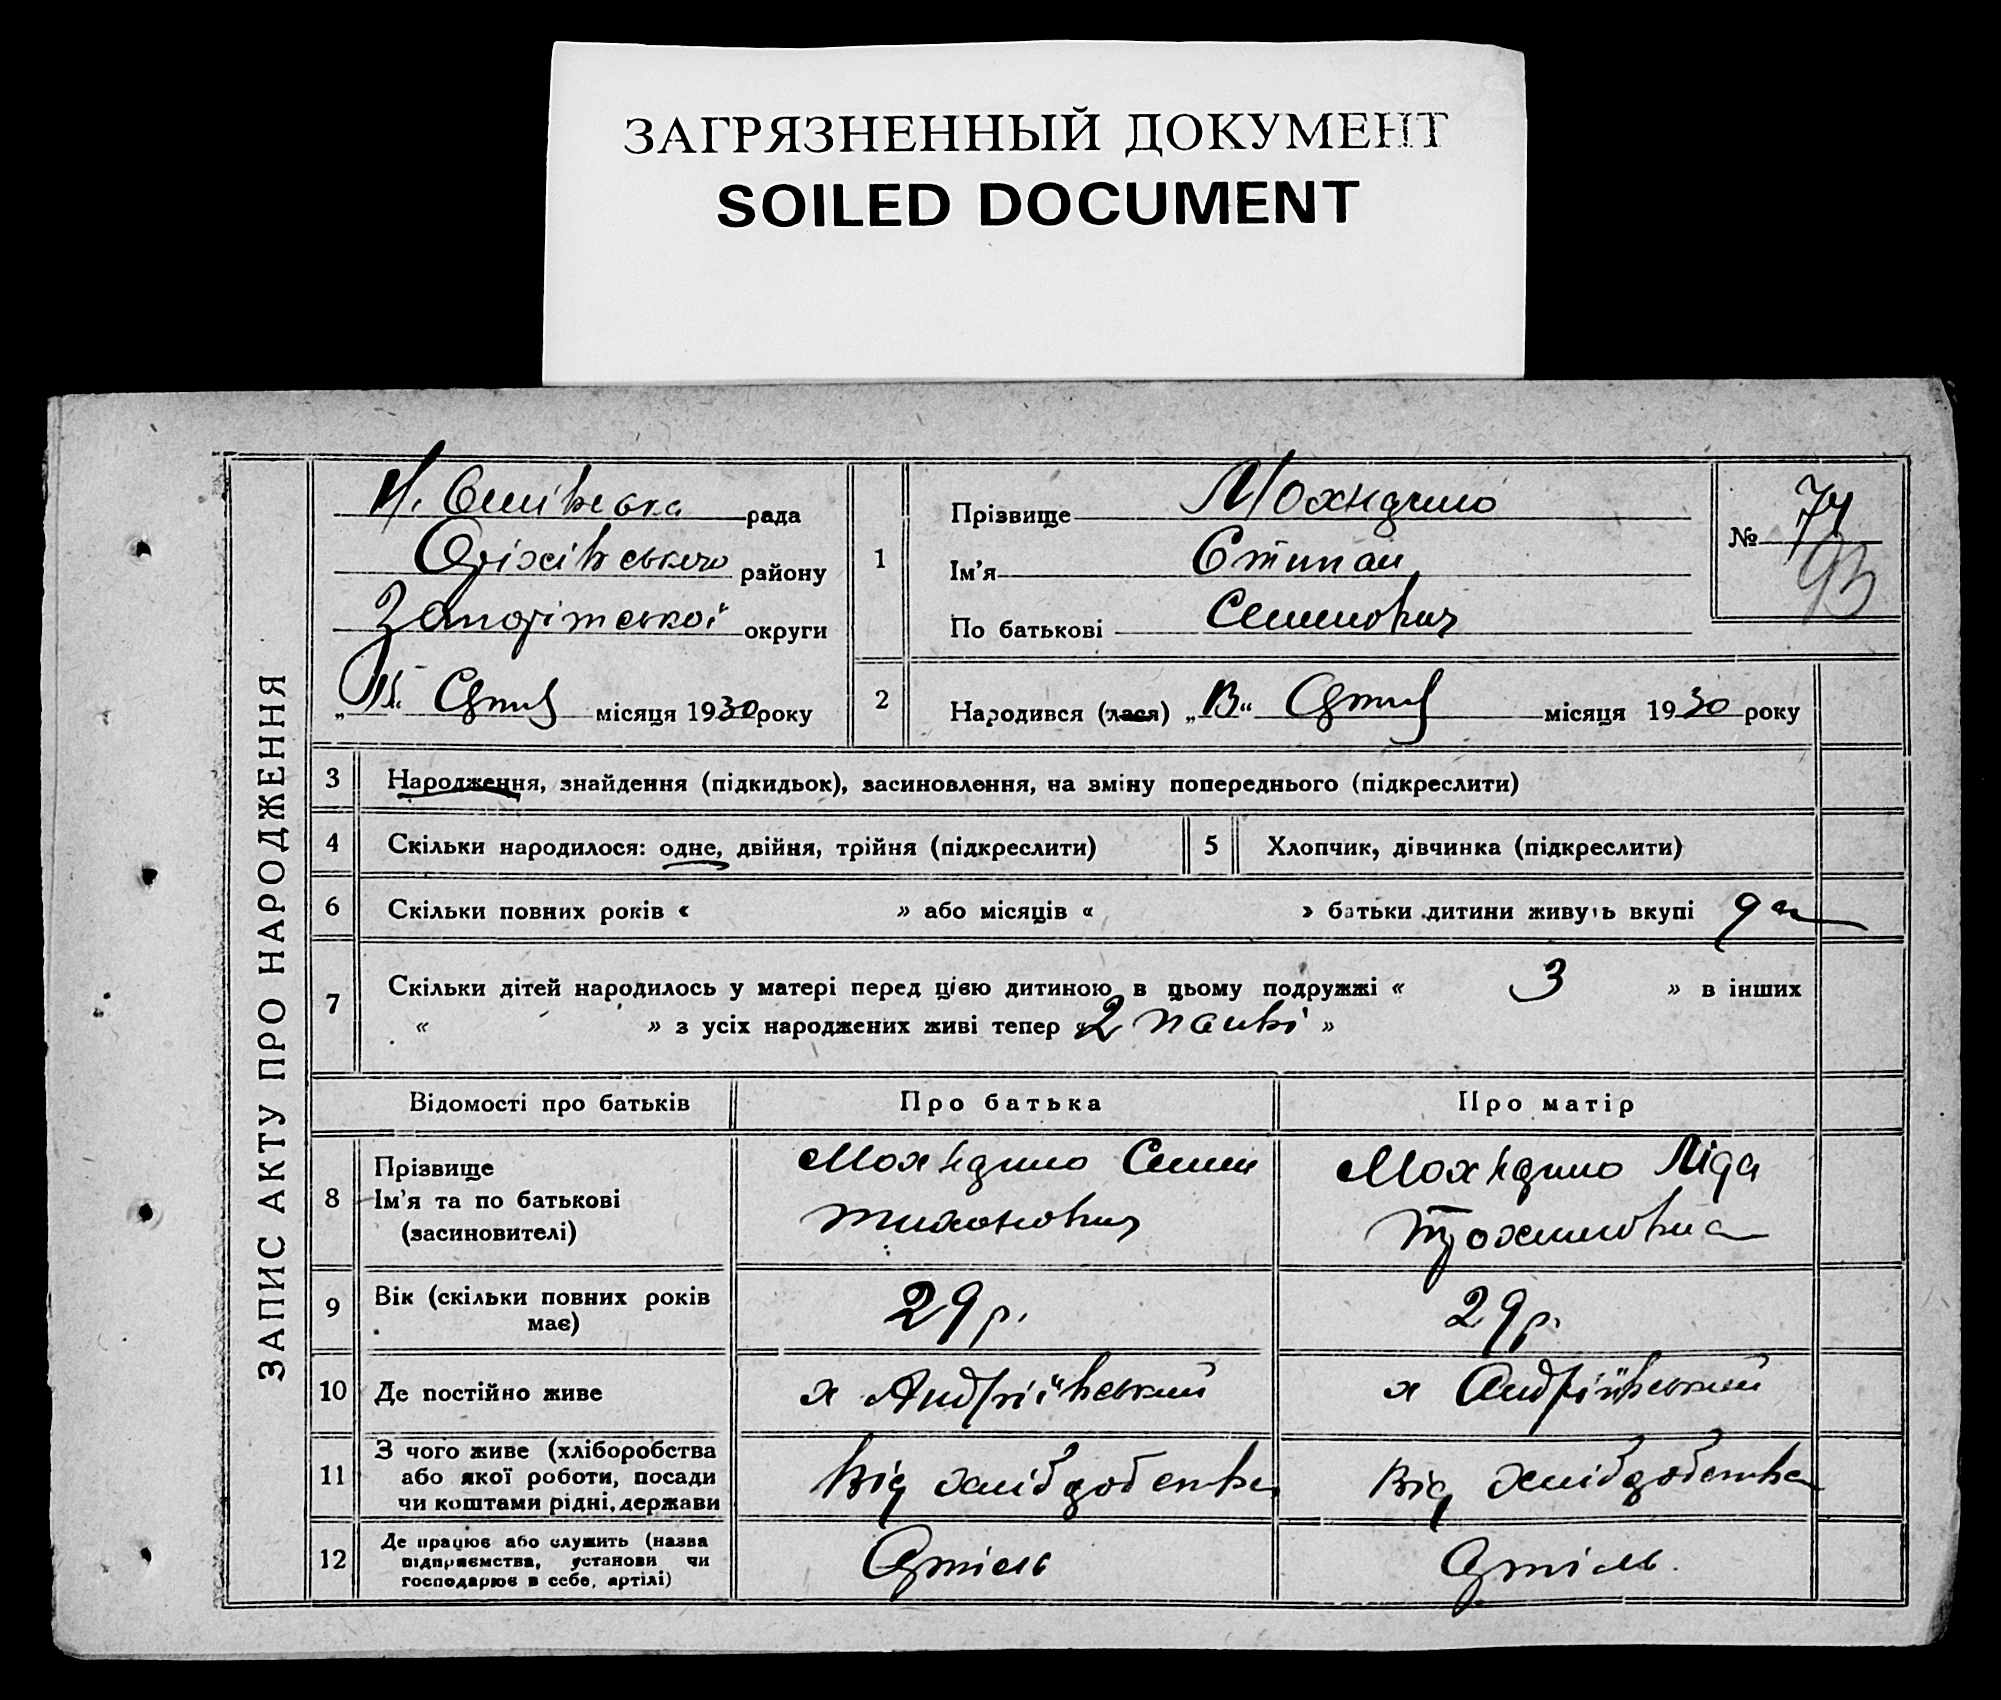 ЗАГРЯЗНЕННЫЙ ДОКУМЕНТ
SOILED DOCUMENT
ЗАПИС АКТУ ПРО НАРОДЖЕННЯ
рада
Оріхівського району
Запоріжської округи
місяця 1930 року
1
Прізвище
Ім'я Степан
По батькові Семенович
№ 74
93
2
Народився (лася) „ “ місяця 1930 року
3 Народження, знайдення (підкидьок), засиновлення, на зміну попереднього (підкреслити)
4 Скільки народилося: одне, двійня, трійня (підкреслити) 5 Хлопчик, дівчинка (підкреслити)
6 Скільки повних років « » або місяців « » батьки дитини живуть вкупі
7 Скільки дітей народилось у матері перед цією дитиною в цьому подружжі « 3 » в інших
« » з усіх народжених живі тепер « 2 »
Відомості про батьків Про батька Про матір
8 Прізвище
Ім'я та по батькові
(засиновителі)
Семен
Тихонович
Ліда
9 Вік (скільки повних років має) 29 р. 29 р.
10 Де постійно живе х Андріївський х Андріївський
11 З чого живе (хліборобства
або якої роботи, посади
чи коштами рідні, держави
Від хлібробства Від хлібробства
12 Де працює або служить (назва
підприємства, установи чи
господарює в себе, артілі)
Артіль Артіль.